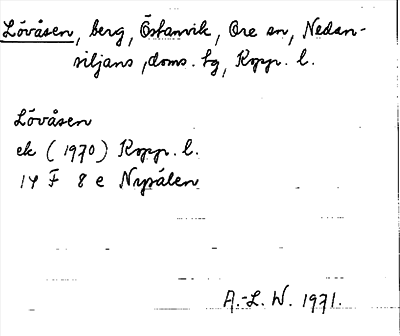 Lövåsen, berg, Östanvik, Ore sn, Nedan-
siljans doms. tg, Kopp. l.
Lövåsen
ek (1970) Kopp. l.
14 F 8 e Nysälen
A.-L. W. 1971.